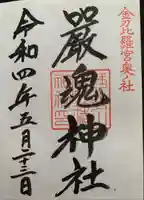 金刀比羅宮奥社
嚴魂神社
令和四年五月二十三日